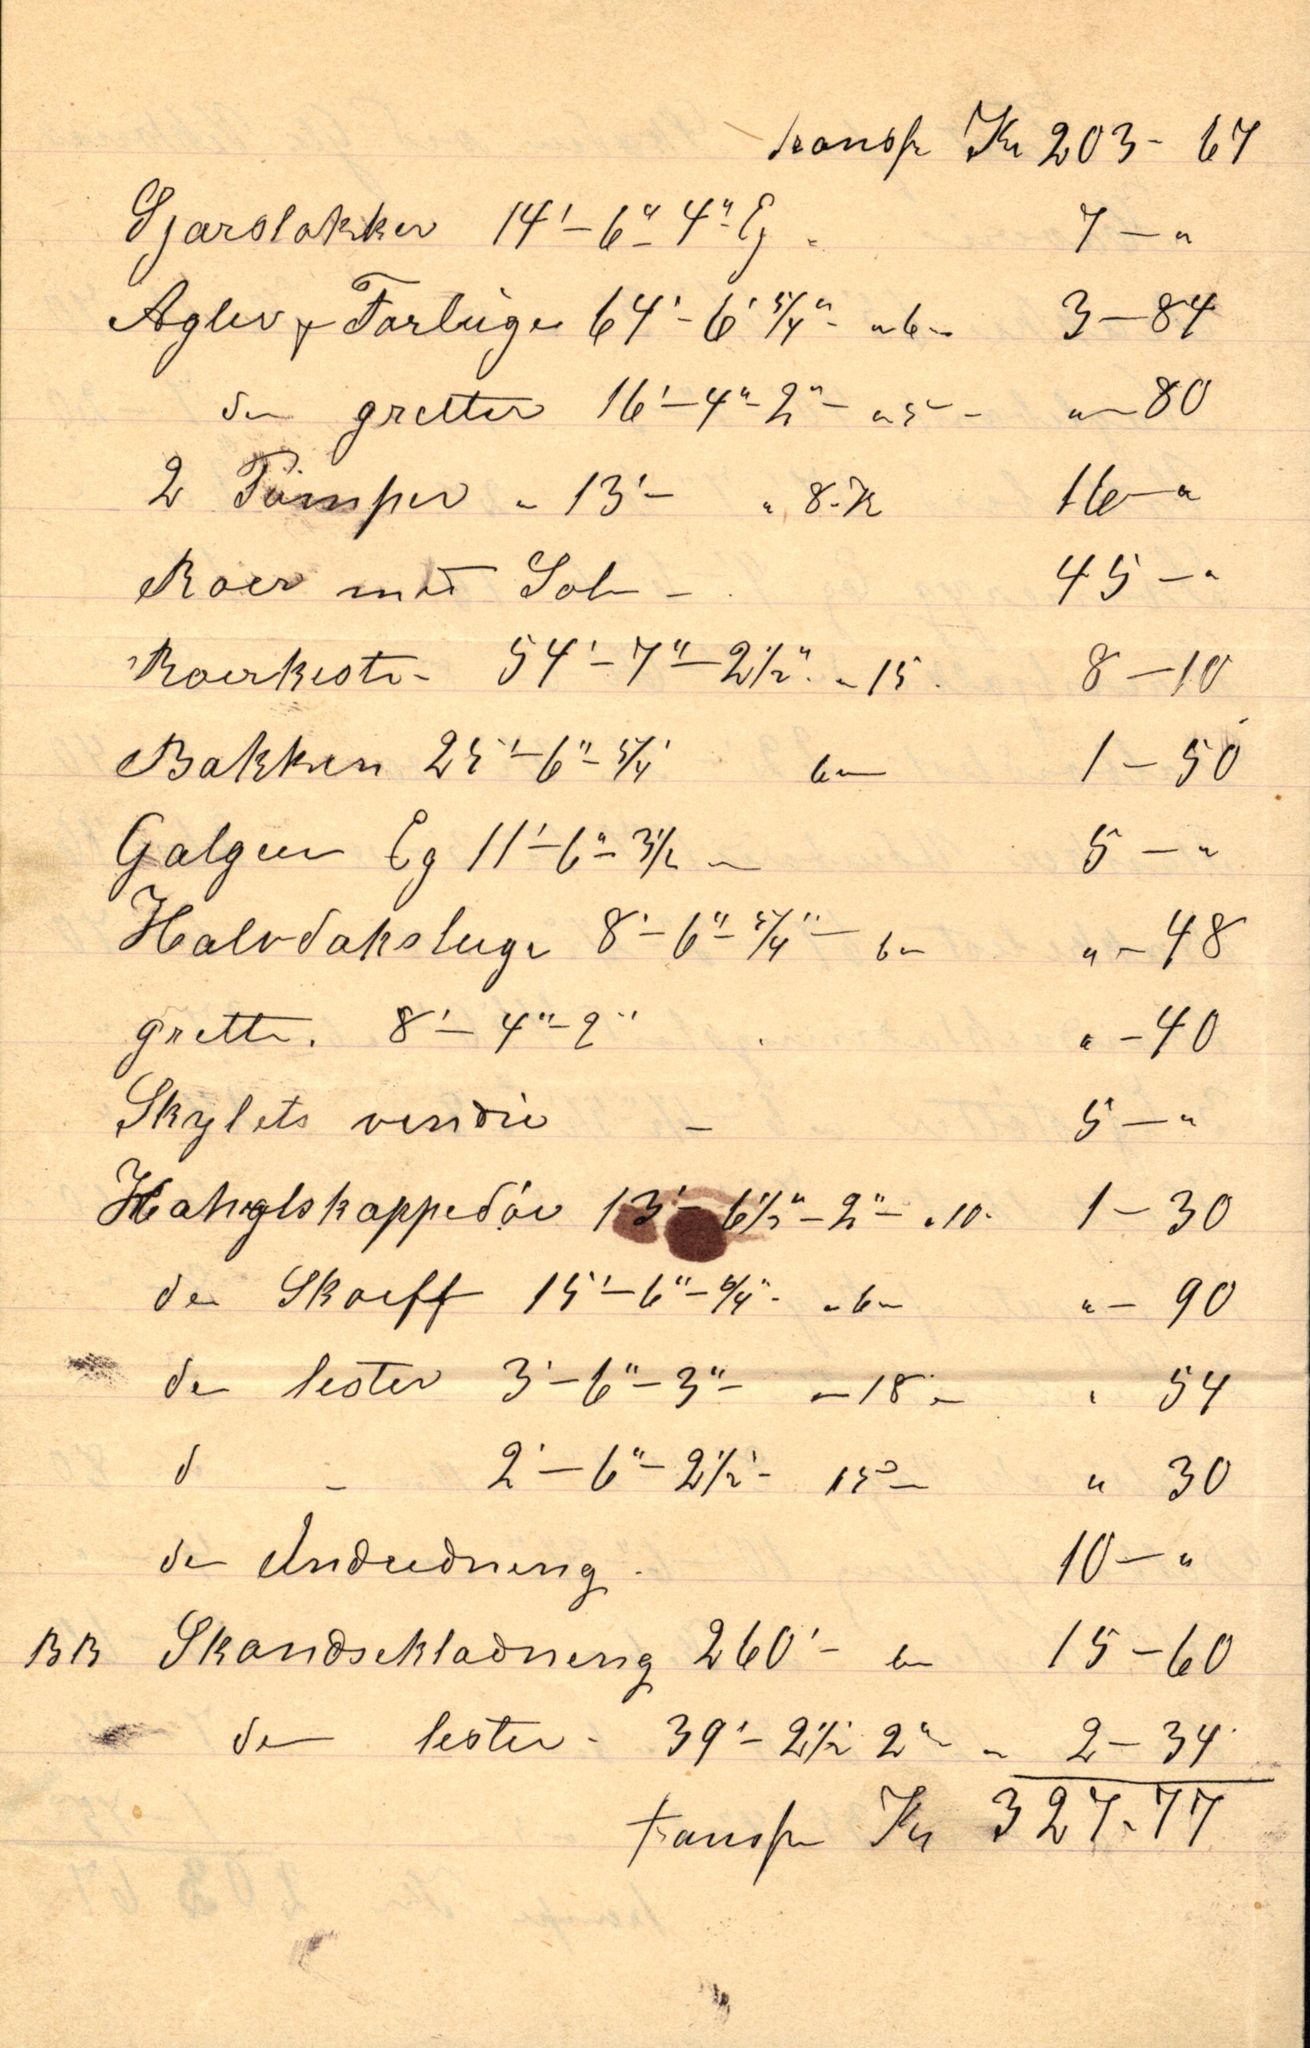 transp Kr 203 - 67
Gjarslakker 14' - 6" - 4" - Eg - 7 - "
Agler & Forluge 64' - 6' 5/4" - " 6 - 3 - 84
do gretter 16' - 4" - 2" - " 5 - " - 80
2 Pumper - 13' - " 8 - K 16 - "
Roer med Sol - 45 - "
Roerkiste - 54' - 7" - 2 1/2" - " 15 - 8 - 10
Bakken 25' - 6" - 5/4' 6 - 1 - 50
Galgen Eg 11' - 6" - 3 1/2 - 5 - "
Halvdaksluge 8' - 6" - 5/4" - 6 - " - 48
grette. 8' - 4" - 2" " - 40
Skylets verdie - 5 - "
skappedör 13' - 6 1/2" - 2" - " 10 - 1 - 30
do Skoeff 15' - 6" - 5/4" - " 6 - " - 90
do lester 3' - 6" - 3" - - 18 - " 54
d - 2' - 6" - 2 1/2' - 15 - " 30
do Indredning. 10 - "
BB Skandsekladning 260' - 6 - 15 - 60
do lester - 39' - 2 1/2 2" - " 2 - 34
transp Kr 327 - 77